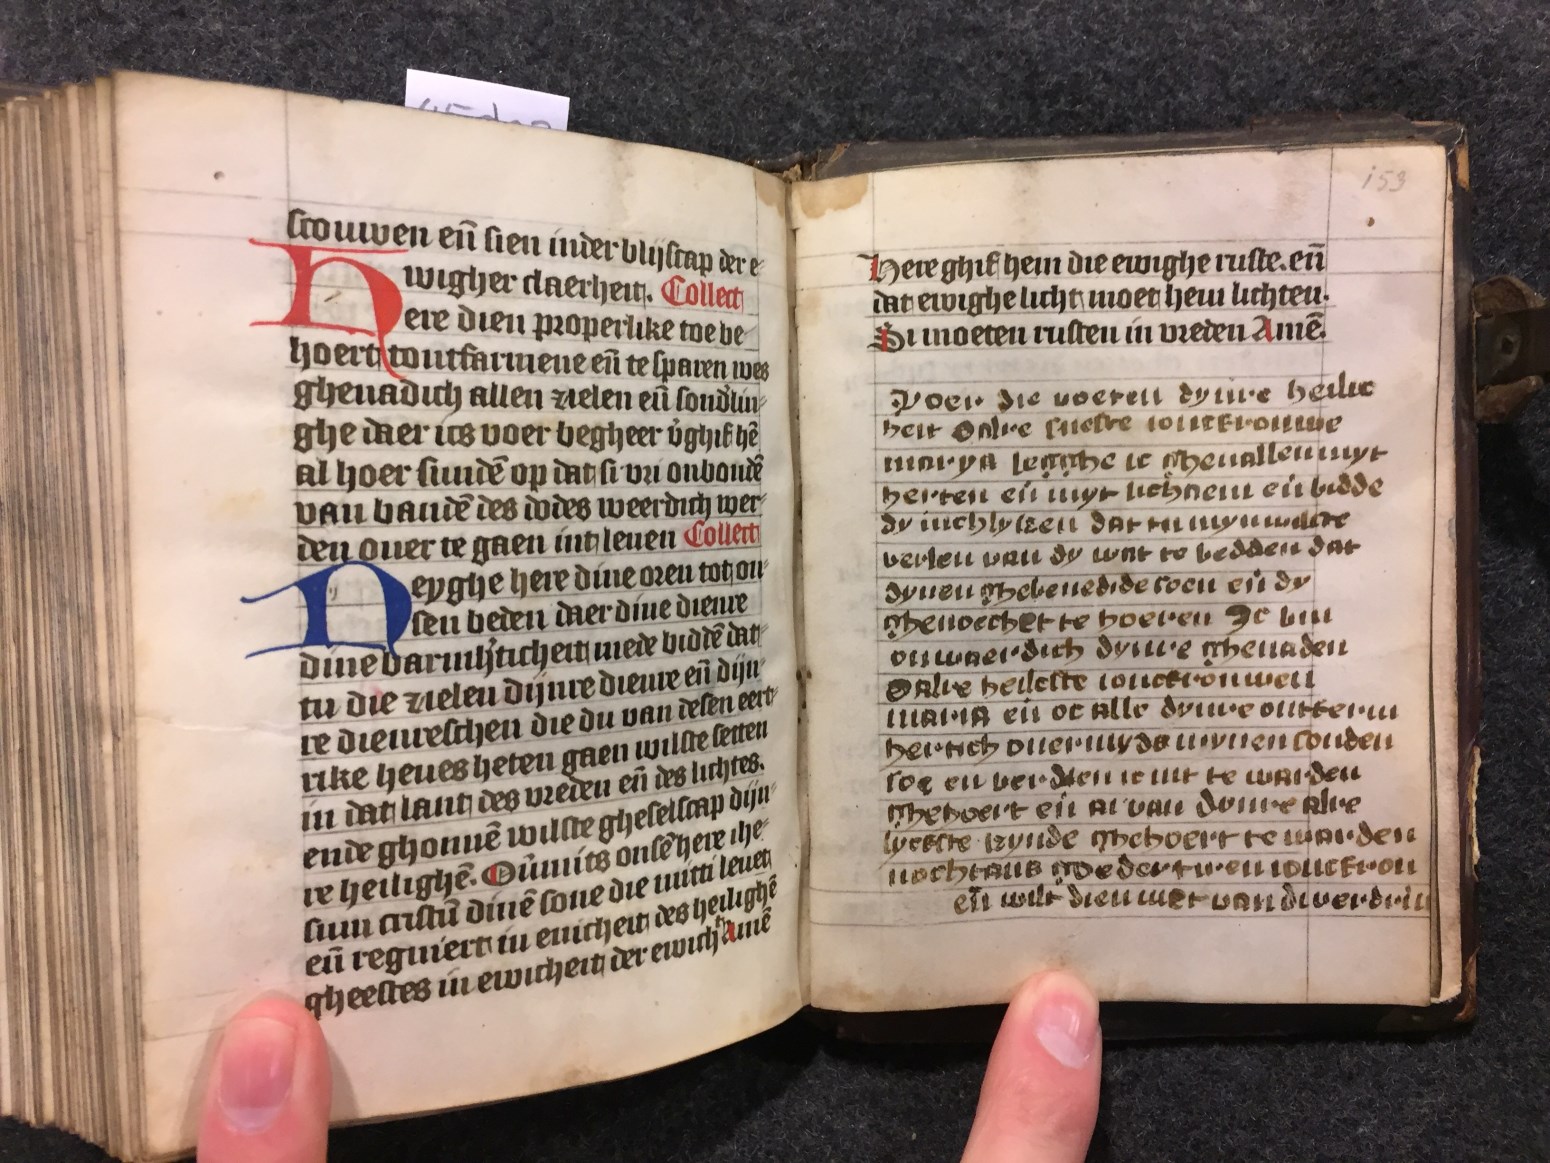 scouwen en̄ sien inder blijscap der e-
wigher claerheit. Collect
Here dien properlike toe be-
hoert tontfarmene en̄ te sparen wes
ghenadich allen zielen en̄ sond'lin-
ghe daer ics voer begheer v'ghif hē
al hoer sundē op dat si vri onbondē
van bandē des dodes weerdich wer-
den ouer te gaen int leuen Collect
Neyghe here dine oren tot on-
sen beden daer dine dienre
dine barmh'ticheit mede biddē dat
tu die zielen dijnre dienre en̄ dijn-
re dienreschen die du van desen eert-
rike heues heten gaen wilste setten
in dat lant des vreden en̄ des lichtes.
ende ghonnē wilste gheselscap dijn-
re heilighē. Ou'mits onsē here ihe-
sum cristū dinē sone die mitti leuet
en̄ regniert in enicheit des heilighē
gheestes in ewicheit der ewich' Amē
153
Here ghif hem die ewighe ruste. en̄
dat ewighe licht moet hem lichten.
Si moeten rusten in vreden Amē.
Voer die voeten dynre heilic
heit O alre sueste ioncfrouwe
marya legghe ic gheuallen myt
herten en̄ myt lichaem en̄ bidde
dy inchlyken dat tu myn
verlen van dy wat te bedden dat
dynen ghebenedide soen en̄ dy
ghenoechet te hoeren Ic bin
onwaerdich dynre ghenaden
O alre heilicste ionctfronwen
maria en̄ oc alle dynre ontferm
hertich ouermyds mynen sonden
soe en verdien ic nit te warden
ghehoert en̄ ai van dynre alre
lyefste kynde ghehoert te warden
nochtans goedertiren ionctfrou
en̄ wilt dien niet van di verdriu